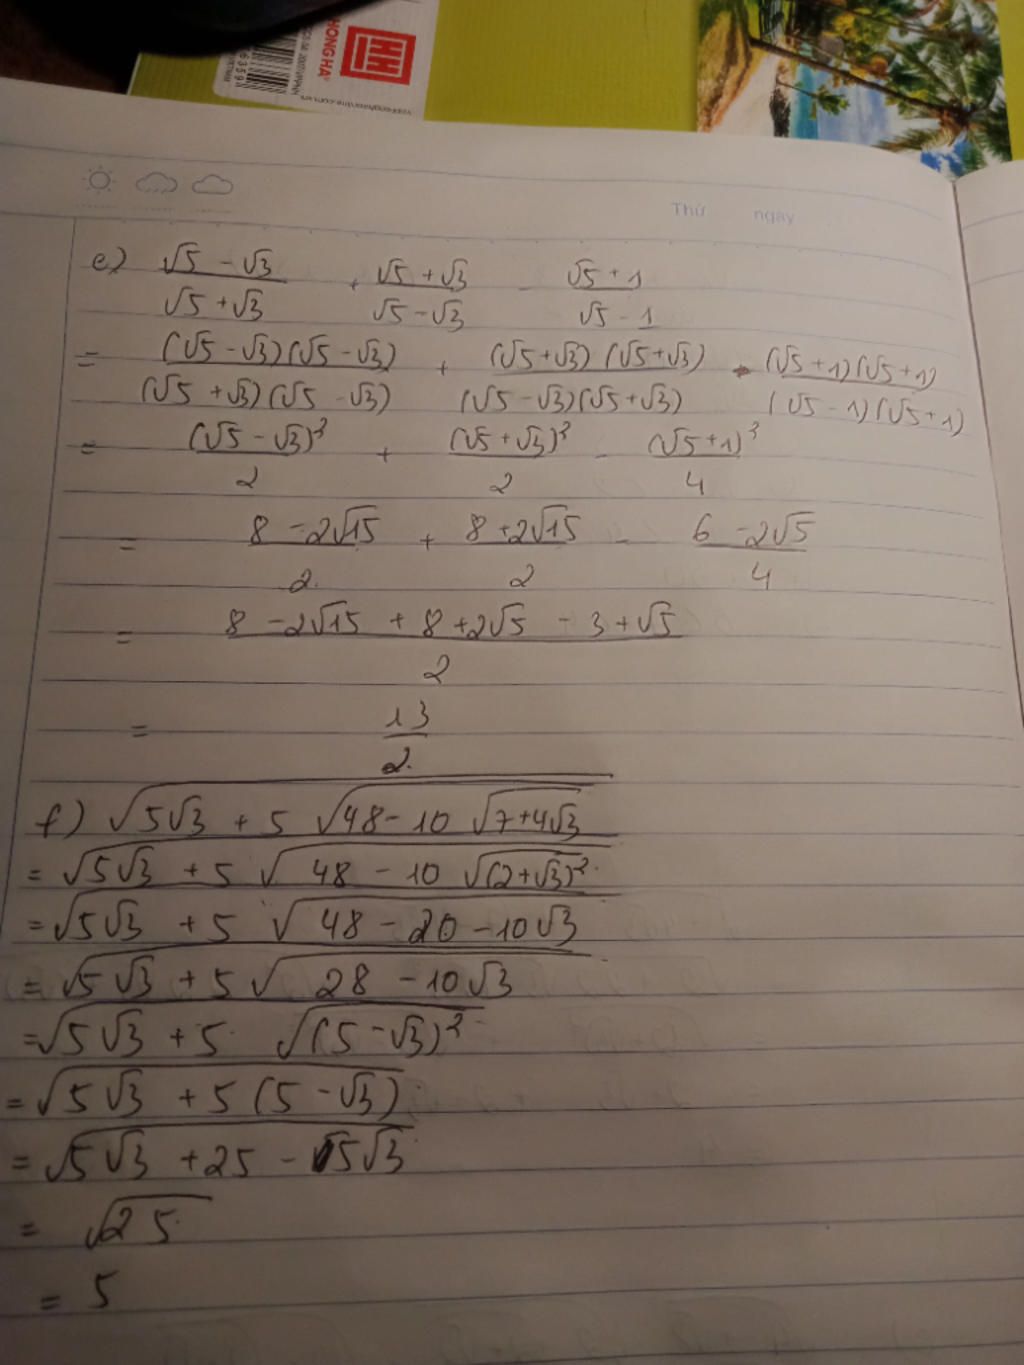 HONG HA
6359
Thứ ngày
e) (√5 - √3)/(√5 + √3) + (√5 + √3)/(√5 - √3) - (√5 + 1)/(√5 - 1)
= ((√5 - √3)(√5 - √3))/((√5 + √3)(√5 - √3)) + ((√5 + √3)(√5 + √3))/((√5 - √3)(√5 + √3)) - ((√5 + 1)(√5 + 1))/((√5 - 1)(√5 + 1))
= (√5 - √3)²/2 + (√5 + √3)²/2 - (√5 + 1)²/4
= (8 - 2√15)/2 + (8 + 2√15)/2 - (6 - 2√5)/4
= (8 - 2√15 + 8 + 2√5 - 3 + √5)/2
= 13/2
f) √(5√3 + 5√(48 - 10√(7 + 4√3)))
= √(5√3 + 5√(48 - 10√((2 + √3)²)))
= √(5√3 + 5√(48 - 20 - 10√3))
= √(5√3 + 5√(28 - 10√3))
= √(5√3 + 5.√((5 - √3)²))
= √(5√3 + 5(5 - √3))
= √(5√3 + 25 - 5√3)
= √25
= 5